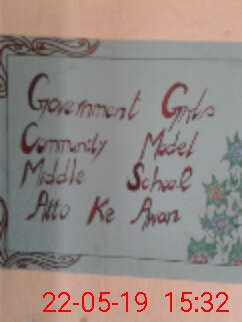 Government Girls
Community Model
Middle School
Atto Ke Awan
22-05-19 15:32